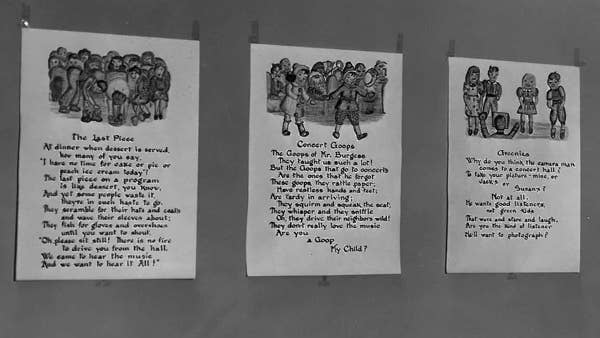 The Last Piece
At dinner when dessert is served,
how many of you say,
"I have no time for cake or pie or
peach ice cream today"?
The last piece on a program
is like dessert, you know,
And yet some people waste it.
They're in such haste to go.
They scramble for their hats and coats
and wave their sleeves about;
They fish for gloves and overshoes
until you want to shout.
"Oh, please sit still! There is no fire
to drive you from the hall.
We came to hear the music
And we want to hear it All!"
Concert Goops
The Goops of Mr. Burgess
They taught us such a lot!
But the Goops that go to concerts
Are the ones that he forgot
These goops, they rattle paper;
Have restless hands and feet;
Are tardy in arriving;
They squirm and squeak the seat;
They whisper and they sniffle
Or, they drive their neighbors wild!
They don't really love the music
Are you
a Goop
My Child?
Greenies
Why do you think the camera man
comes to a concert hall?
To take your picture - mine, or
Jack's,
or
Susan's?
Not at all.
He wants good listeners,
not green kids
That wave and stare and laugh;
Are you the kind of listener
He'll want to photograph?